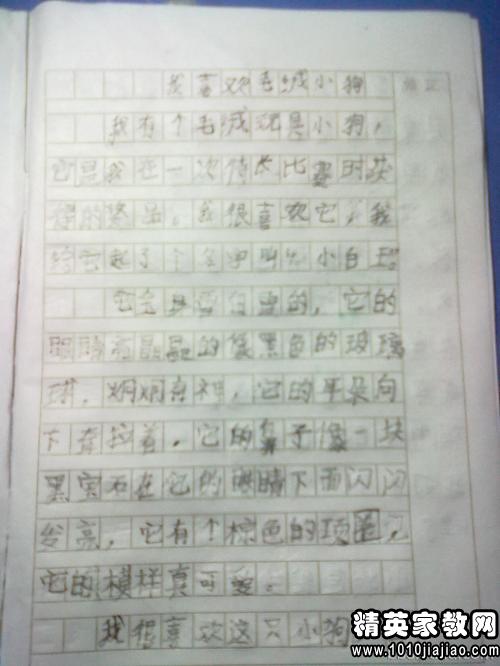 我喜欢毛绒小狗
我有个毛绒玩具小狗，
它是我在一次特长比赛时获
得的奖品。我很喜欢它，我
给它起了个名字叫小白
它全身雪白雪白的，它的
眼睛亮晶晶的像黑色的玻璃
球，炯炯有神，它的耳朵向
下耷拉着，它的鼻子像一块
黑宝石在它的眼睛下面闪闪
发亮，它有个棕色的项圈，
它的模样真可爱。
我很喜欢这只小狗
精英家教网
www.1010jiajiao.com